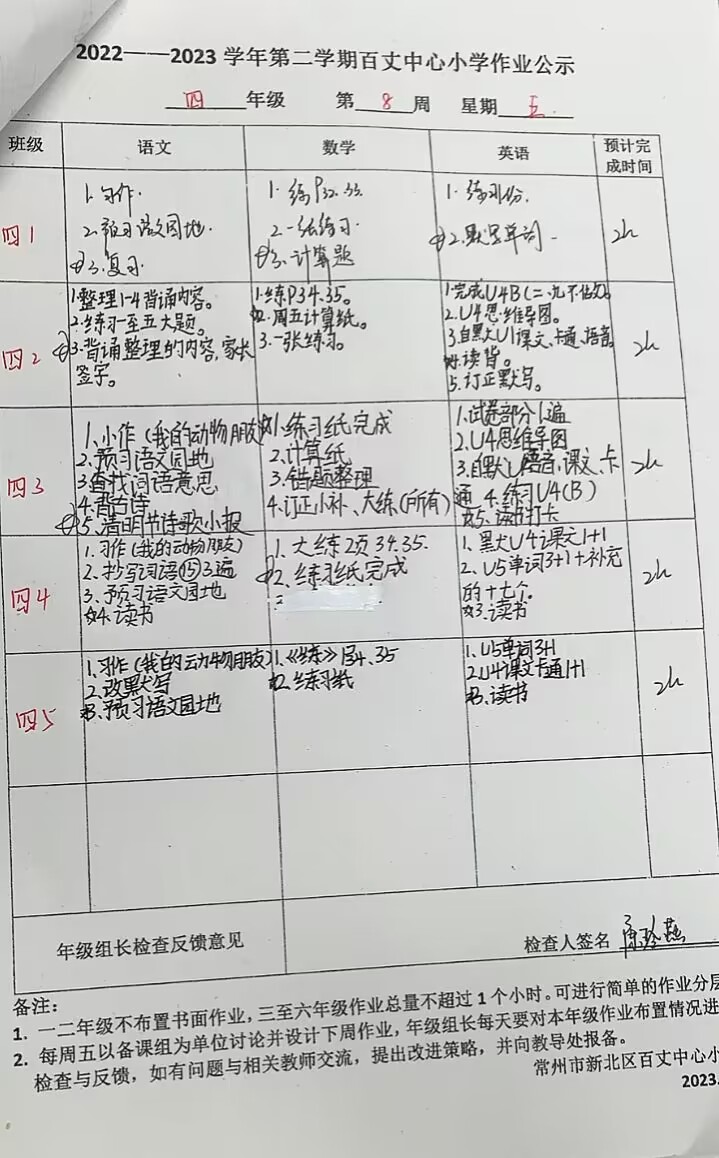 2022——2023 学年第二学期百丈中心小学作业公示
四 年级 第 8 周 星期 五
班级 语文 数学 英语 预计完成时间
四1
1. 习作.
2. 预习语文园地.
☆3. 复习.
1. 练P32.33.
2. 一张练习.
☆3. 计算题
1. 练习份.
☆2. 默写单词.
2h
四2
1.整理1-4背诵内容。
2.练习一至五大题。
☆3.背诵整理的内容,家长
签字。
1.练P34.35。
☆2.周五计算纸。
3.一张练习。
1.完成U4B(二.九不做)。
2.U4思维导图。
3.自默大U1课文、卡通、语音
☆4.读背。
5.订正默写。
2h
四3
1、小作(我的动物朋友)
2.预习语文园地
3.查找词语意思
4.背古诗
☆5、清明节诗歌小报
☆1.练习纸完成
2.计算纸
3.错题整理
4.订正小补、大练(所有)
1.试卷部分1遍
2.U4思维导图
3.自默大U语音、课文、卡
通 4.练习U4(B)
☆5.读书打卡
2h
四4
1.习作(我的动物朋友)
2.抄写词语⑮3遍
3.预习语文园地
☆4.读书
1、大练2页 34.35.
☆2、练习纸完成
1.默大U4课文1+1
2、U5单词3+1+补充
的十七个.
☆3.读书
2h
四5
1.习作(我的动物朋友)
2.改默写
☆3.预习语文园地
1.《练》P34、35
☆2.练习纸
1.U5单词3+1
2.U4课文卡通1+1
☆3.读书
2h
年级组长检查反馈意见
检查人签名
备注:
1. 一二年级不布置书面作业,三至六年级作业总量不超过 1 个小时。可进行简单的作业分层
2. 每周五以备课组为单位讨论并设计下周作业,年级组长每天要对本年级作业布置情况进
检查与反馈,如有问题与相关教师交流,提出改进策略,并向教导处报备。
常州市新北区百丈中心小
2023.